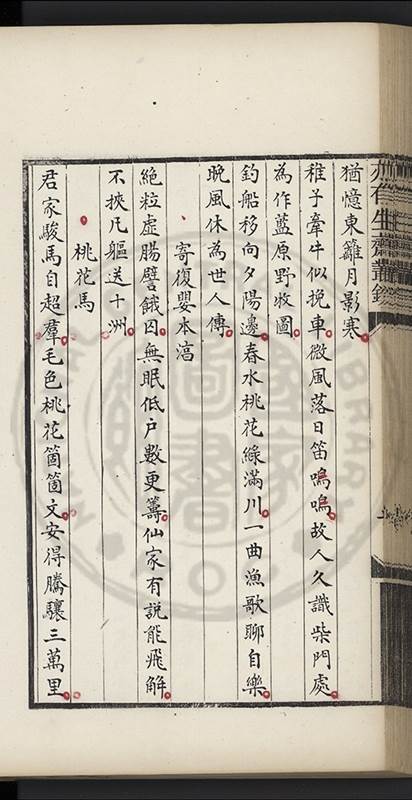 猶憶東籬月影寒
稚子牽牛似挽車微風落日笛嗚嗚故人久識柴門處
為作藍原野牧圖
釣船移向夕陽邊春水桃花綠滿川一曲漁歌聊自樂
晚風休為世人傳
寄復嬰本滈
絕粒虛腸譬餓囚無眠低戶數更籌仙家有說能飛解
不挾凡軀送十洲
桃花馬
君家駿馬自超羣毛色桃花箇箇文安得騰驤三萬里